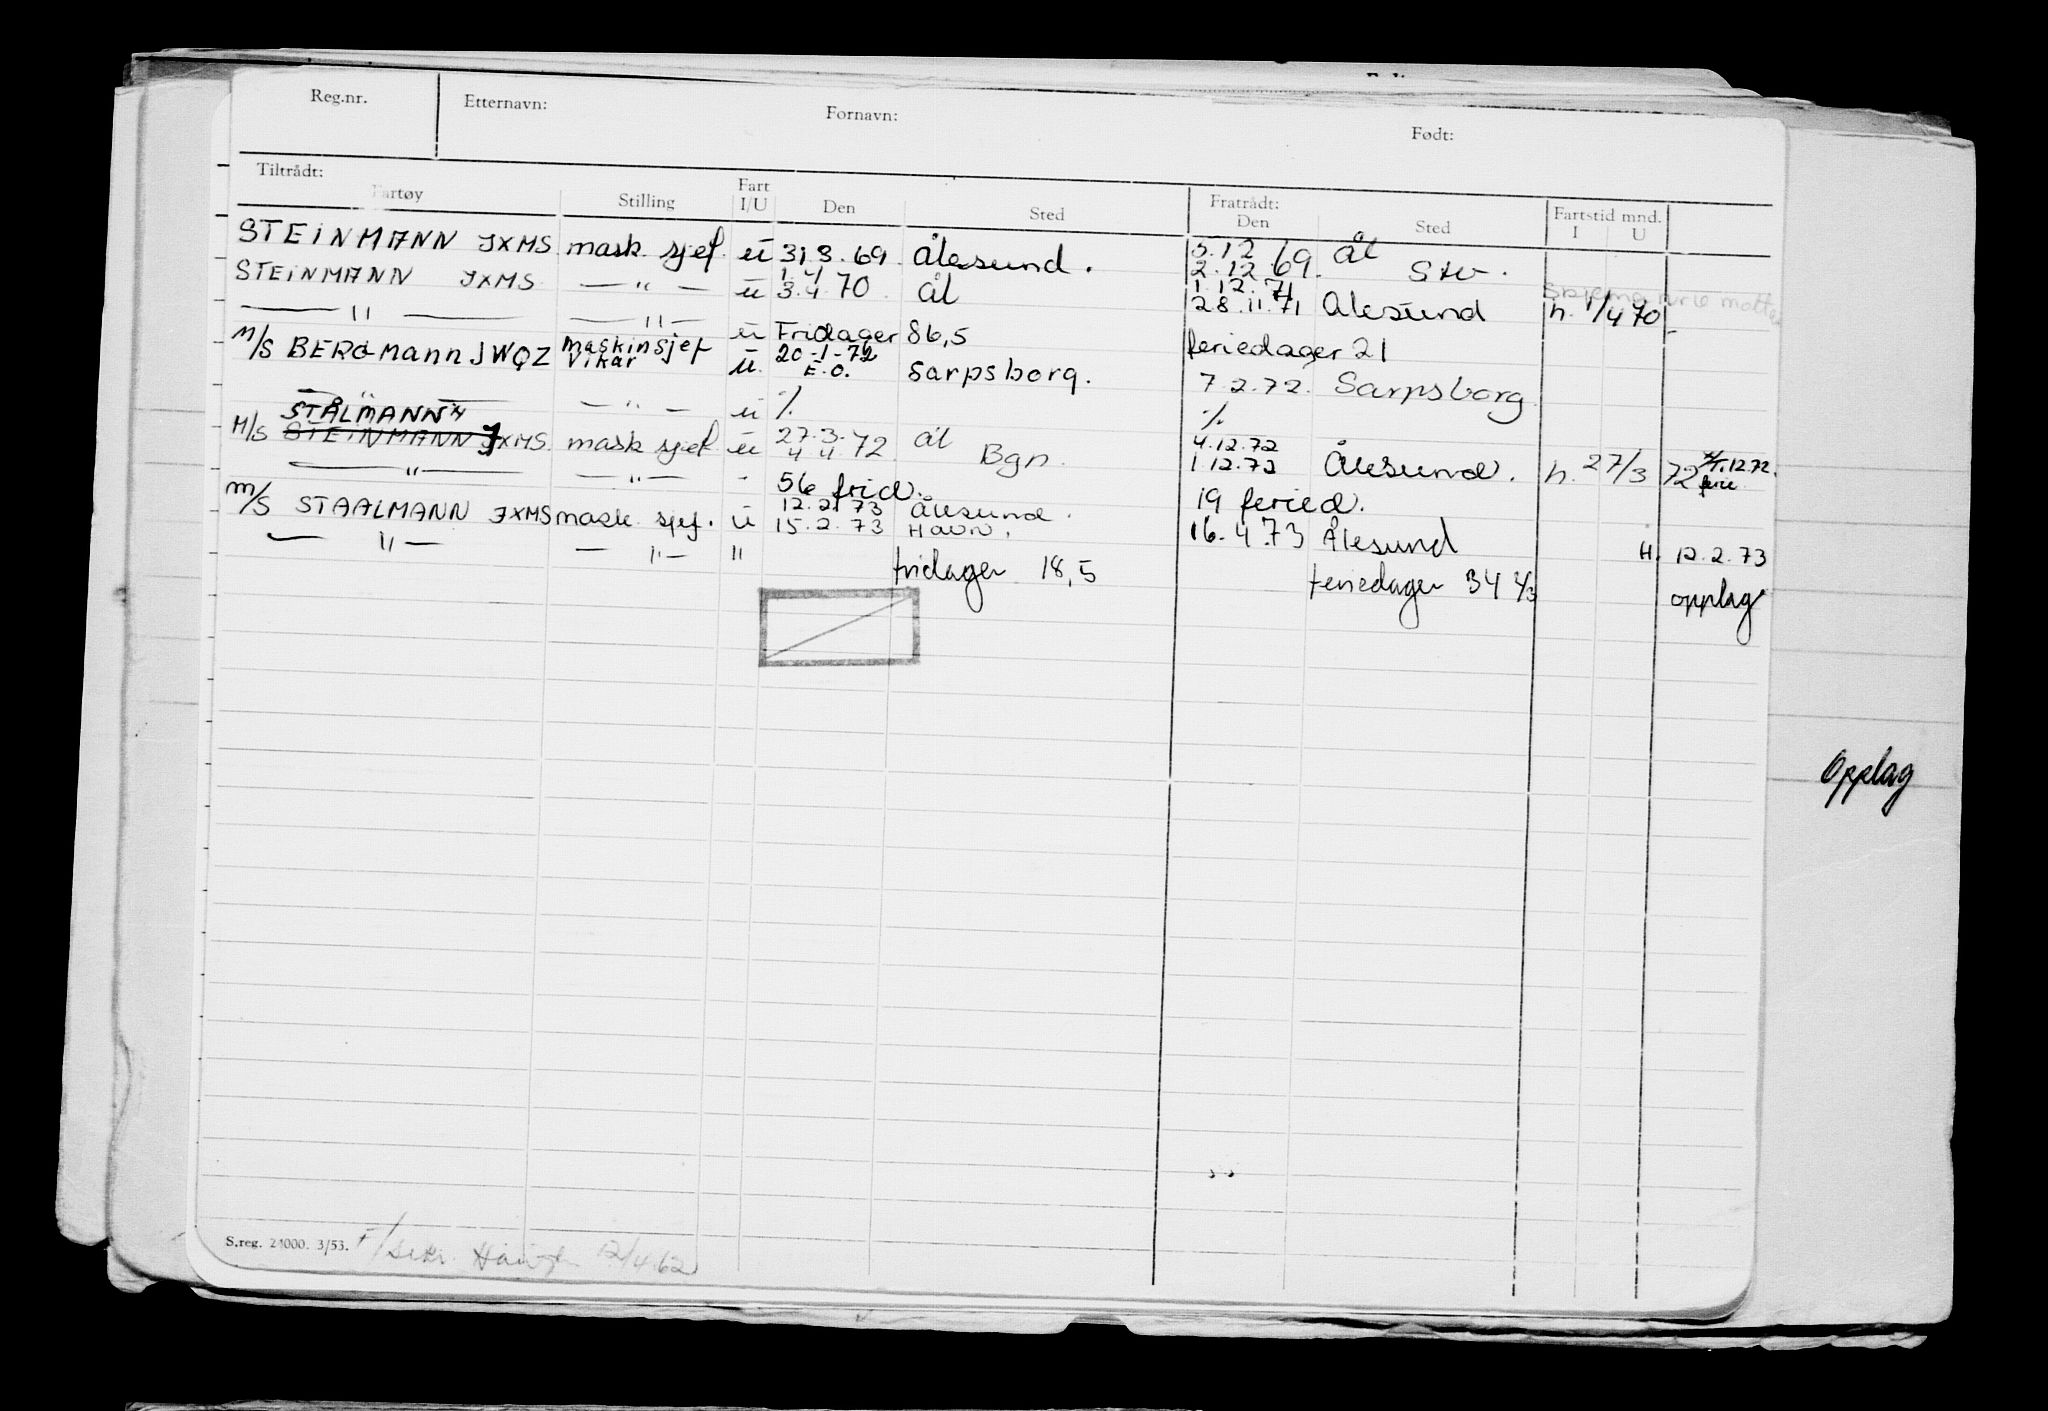 Reg.nr. Etternavn: Fornavn: Født:
Tiltrådt: Fratrådt:
Fartøy Stilling Fart I/U Den Sted Den Sted Fartstid mnd. I U
STEINMANN JXMS mask. sjef. u 31.3.69 Ålesund. 5.12.69 Ål
2.12.69. Stv.
STEINMANN JXMS — " — u 1.4.70 Ål 1.12.71
3.4.70 28.11.71 Ålesund h. 1/4 70
— " — — " — u Fridager 86,5 feriedager 21
M/S BERGMANN JWQZ Maskinsjef Vikar u. 20-1-72 E.O. Sarpsborg. 7.2.72. Sarpsborg
— " — — " — u % %
STÅLMANN
M/S STEINMANN JXMS. mask sjef. u 27.3.72 ål 4.12.72
4.4.72 Bgn. 1.12.72 Ålesund. h. 27/3 72 4/12.72. ferie
— " — — " — - 56 frid. 19 feried.
M/S STAALMANN JXMS mask. sjef. u 12.2.73 Ålesund.
15.2.73 Havn. 16.4.73 Ålesund H. 12.2.73
— " — — " — " fridager 18,5 feriedager 34 1/3 opplag
Opplag
S.reg. 24000. 3/53. 12/4.62